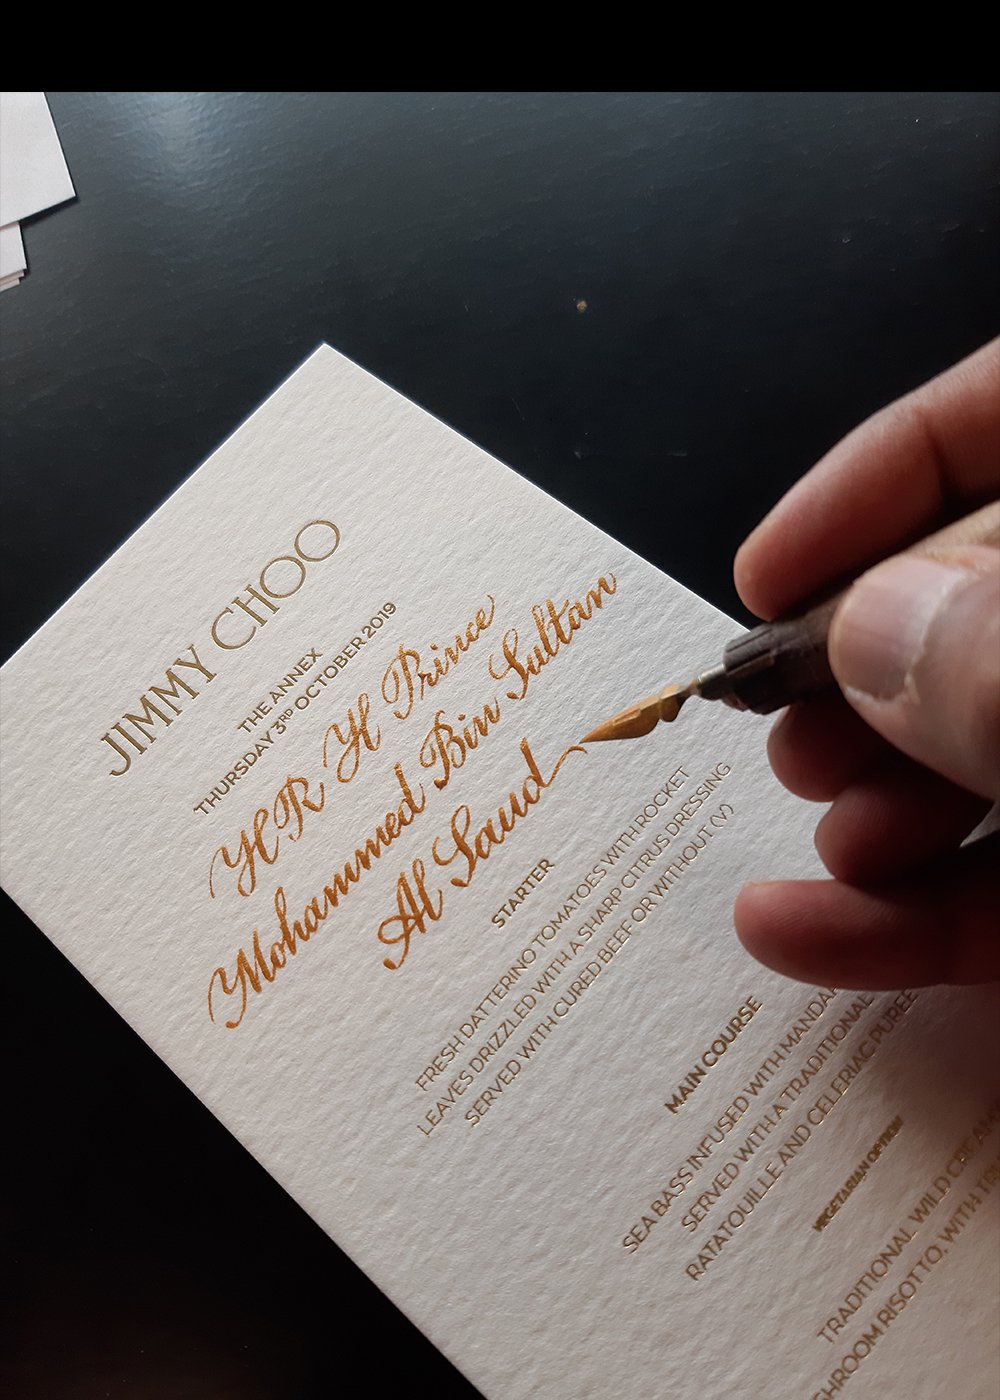 JIMMY CHOO
THE ANNEX
THURSDAY 3RD OCTOBER 2019
HR H Prince
Mohammed Bin Sultan
Al Saud
STARTER
FRESH DATTERINO TOMATOES WITH ROCKET
LEAVES DRIZZLED WITH A SHARP CITRUS DRESSING
SERVED WITH CURED BEEF OR WITHOUT (V)
MAIN COURSE
SEA BASS INFUSED WITH
SERVED WITH A TRADITIONAL
RATATOUILLE AND CELERIAC PUREE
VEGETARIAN OPTION
TRADITIONAL WILD
RISOTTO, WITH